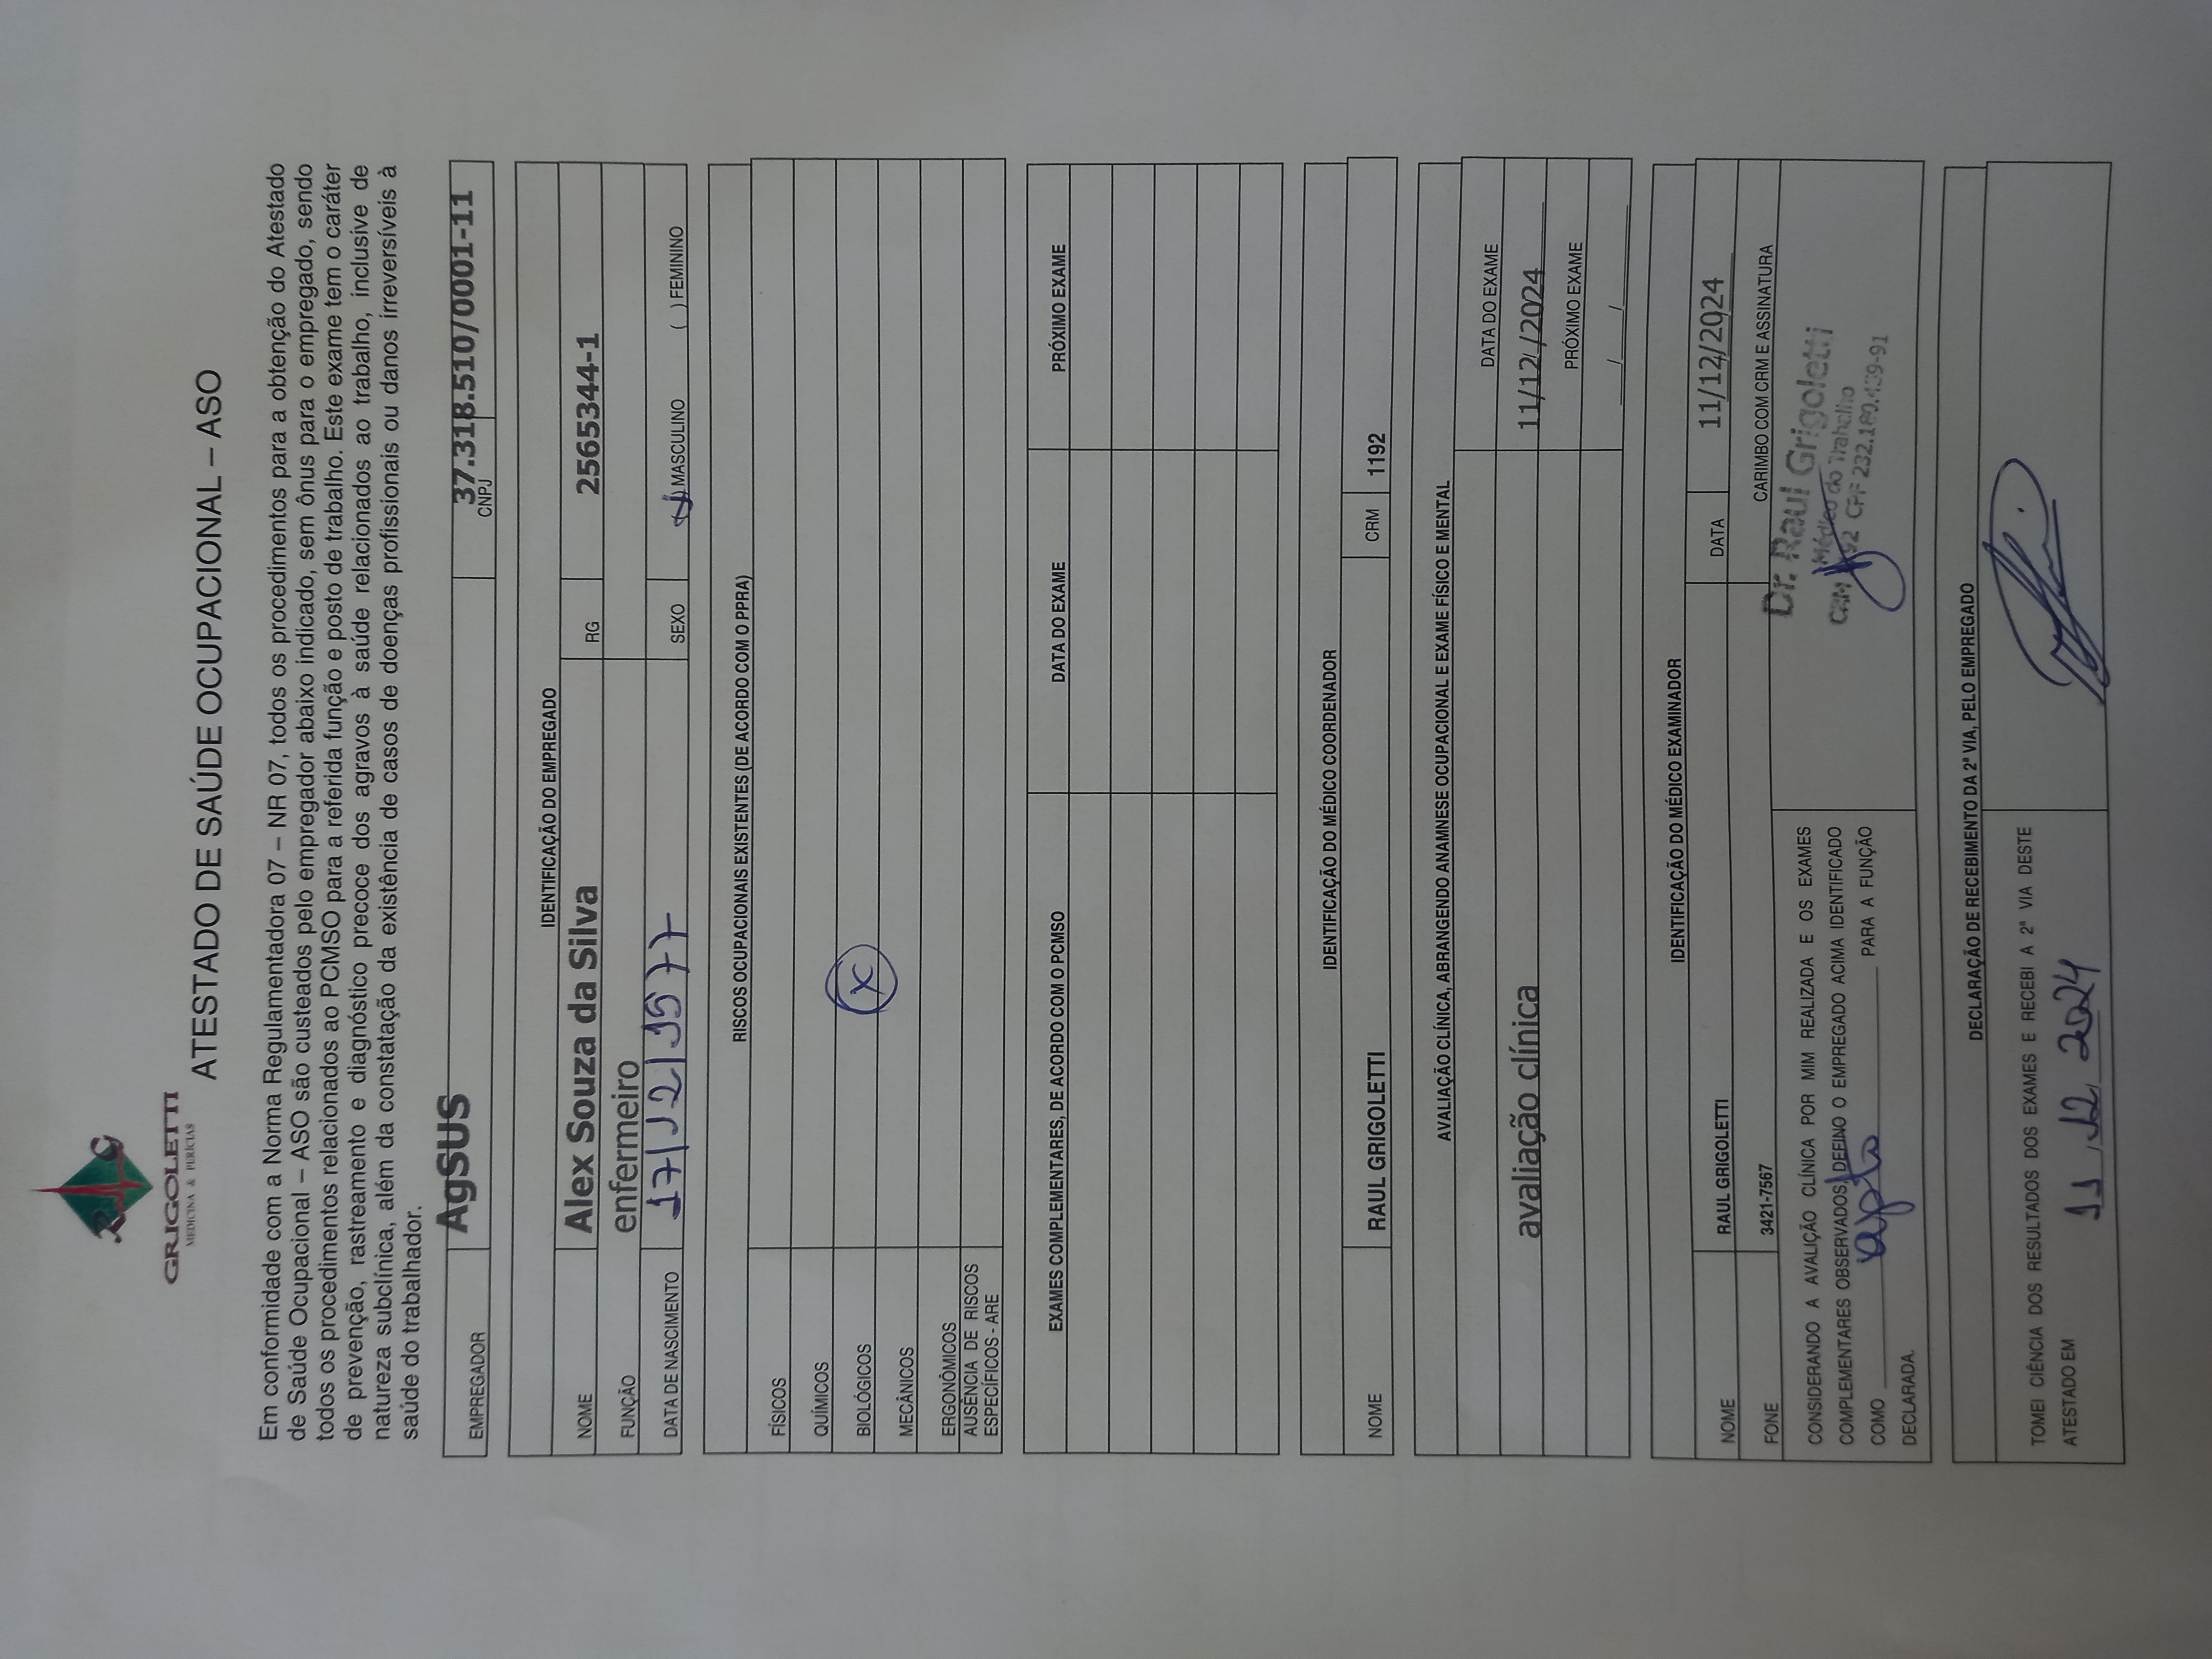 R G
GRIGOLETTI
MEDICINA & PERÍCIAS
ATESTADO DE SAÚDE OCUPACIONAL – ASO
Em conformidade com a Norma Regulamentadora 07 – NR 07, todos os procedimentos para a obtenção do Atestado
de Saúde Ocupacional – ASO são custeados pelo empregador abaixo indicado, sem ônus para o empregado, sendo
todos os procedimentos relacionados ao PCMSO para a referida função e posto de trabalho. Este exame tem o caráter
de prevenção, rastreamento e diagnóstico precoce dos agravos à saúde relacionados ao trabalho, inclusive de
natureza subclínica, além da constatação da existência de casos de doenças profissionais ou danos irreversíveis à
saúde do trabalhador.
EMPREGADOR AgSUS CNPJ 37.318.510/0001-11
IDENTIFICAÇÃO DO EMPREGADO
NOME Alex Souza da Silva RG 2565344-1
FUNÇÃO enfermeiro
DATA DE NASCIMENTO 17/12/1977 SEXO (x) MASCULINO ( ) FEMININO
RISCOS OCUPACIONAIS EXISTENTES (DE ACORDO COM O PPRA)
FÍSICOS
QUÍMICOS
BIOLÓGICOS X
MECÂNICOS
ERGONÔMICOS
AUSÊNCIA DE RISCOS
ESPECÍFICOS - ARE
EXAMES COMPLEMENTARES, DE ACORDO COM O PCMSO DATA DO EXAME PRÓXIMO EXAME
IDENTIFICAÇÃO DO MÉDICO COORDENADOR
NOME RAUL GRIGOLETTI CRM 1192
AVALIAÇÃO CLÍNICA, ABRANGENDO ANAMNESE OCUPACIONAL E EXAME FÍSICO E MENTAL
DATA DO EXAME
avaliação clínica 11/12/2024
PRÓXIMO EXAME
___/___/______
IDENTIFICAÇÃO DO MÉDICO EXAMINADOR
NOME RAUL GRIGOLETTI DATA 11/12/2024
FONE 3421-7567 CARIMBO COM CRM E ASSINATURA
CONSIDERANDO A AVALIÇÃO CLÍNICA POR MIM REALIZADA E OS EXAMES
COMPLEMENTARES OBSERVADOS, DEFINO O EMPREGADO ACIMA IDENTIFICADO
COMO apto PARA A FUNÇÃO
DECLARADA.
Dr. Raul Grigoletti
Médico do Trabalho
CRM 1192 CPF 232.180.439-91
DECLARAÇÃO DE RECEBIMENTO DA 2ª VIA, PELO EMPREGADO
TOMEI CIÊNCIA DOS RESULTADOS DOS EXAMES E RECEBI A 2ª VIA DESTE
ATESTADO EM 11/12/2024